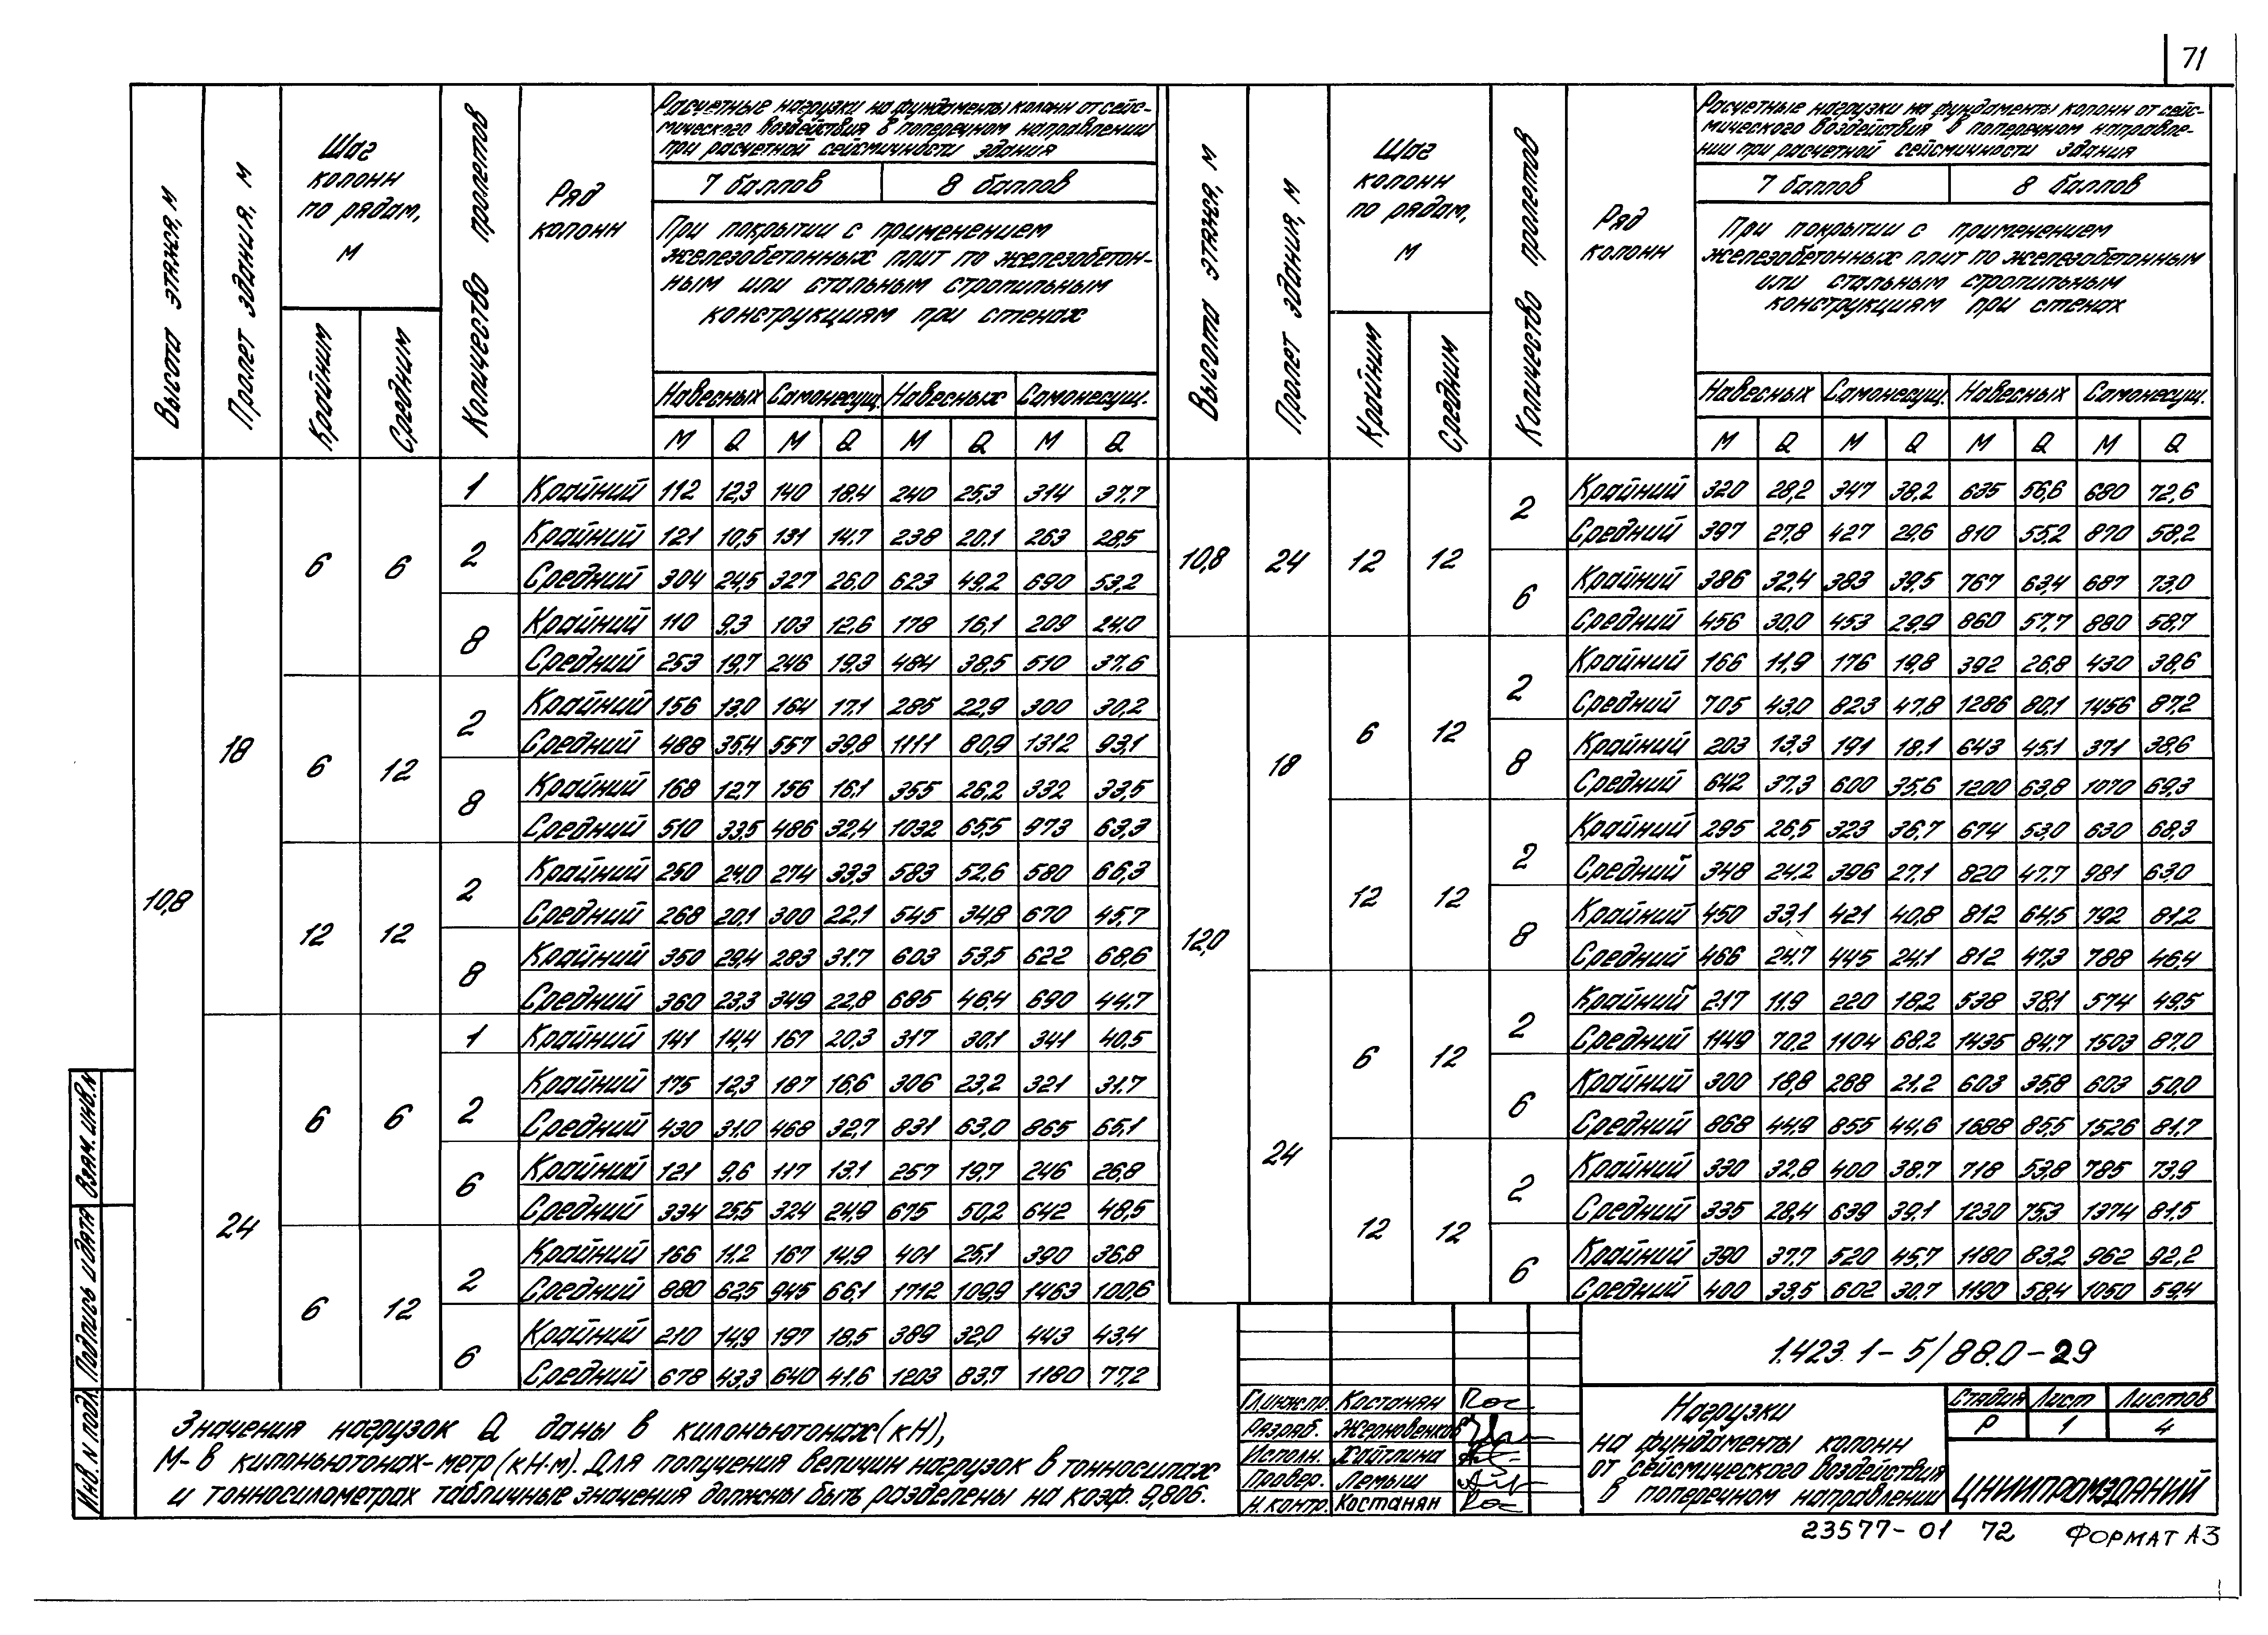 71
Высота этажа, м
Пролет здания, м
Шаг
колонн
по рядам,
м
Крайним
Средним
Количество пролетов
Ряд
колонн
Расчетные нагрузки на фундаменты колонн от сейс-
мического воздействия в поперечном направлении
при расчетной сейсмичности здания
7 баллов 8 баллов
При покрытии с применением
железобетонных плит по железобетон-
ным или стальным стропильным
конструкциям при стенах
Навесных Самонесущ. Навесных Самонесущ.
М Q М Q М Q М Q
10,8 18 6 6 1 Крайний 112 12,3 140 18.4 240 25,3 314 37.7
2 Крайний 121 10,5 131 14.7 238 20.1 263 28,5
Средний 304 24,5 327 26.0 623 49,2 690 53,2
8 Крайний 110 9,3 103 12,6 178 16,1 209 24,0
Средний 253 19,7 246 19,3 484 38,5 510 37.6
6 12 2 Крайний 156 13,0 164 17.1 285 22,9 300 30,2
Средний 488 35,4 557 39,8 1111 80,9 1312 93,1
8 Крайний 168 12,7 156 16,1 355 26,2 332 33,5
Средний 510 33,5 486 32,4 1032 65,5 973 63,3
12 12 2 Крайний 250 24,0 274 33,3 583 52.6 580 66,3
Средний 268 20,1 300 22,1 545 34,8 670 45,7
8 Крайний 350 29,4 283 31.7 603 53,5 622 68,6
Средний 360 23,3 349 22,8 685 46,4 690 44.7
24 6 6 1 Крайний 141 14,4 167 20,3 317 30.1 341 40,5
2 Крайний 175 12,3 187 16,6 306 23,2 321 31.7
Средний 430 31,0 468 32,7 831 63,0 865 65,1
6 Крайний 121 9,6 117 13.1 257 19,7 246 26,8
Средний 334 25,5 324 24,9 675 50,2 642 48,5
6 12 2 Крайний 166 11.2 167 14,9 401 25,1 390 36,8
Средний 880 62,5 945 66,1 1712 109,9 1463 100,6
6 Крайний 210 14,9 197 18,5 389 32,0 443 43,4
Средний 678 43,3 640 41.6 1203 83,7 1180 77,2
Высота этажа, м
Пролет здания, м
Шаг
колонн
по рядам,
м
Крайним
Средним
Количество пролетов
Ряд
колонн
Расчетные нагрузки на фундаменты колонн от сейс-
мического воздействия в поперечном направле-
нии при расчетной сейсмичности здания
7 баллов 8 баллов
При покрытии с применением
железобетонных плит по железобетонным
или стальным стропильным
конструкциям при стенах
Навесных Самонесущ. Навесных Самонесущ.
М Q М Q М Q М Q
10,8 24 12 12 2 Крайний 320 28,2 347 38,2 635 56,6 680 72,6
Средний 397 27,8 427 29,6 810 55,2 870 58,2
6 Крайний 386 32,4 383 39,5 767 63,4 687 73,0
Средний 456 30,0 453 29,9 860 57,7 880 58,7
12,0 18 6 12 2 Крайний 166 11,9 176 19,8 392 26,8 430 38,6
Средний 705 43,0 823 47,8 1286 80,1 1456 87,2
8 Крайний 203 13,3 191 18.1 643 45,1 371 38,6
Средний 642 37,3 600 35,6 1200 63,8 1070 69,3
12 12 2 Крайний 295 26,5 323 36,7 674 53,0 630 68,3
Средний 348 24,2 396 27,1 820 47.7 981 63,0
8 Крайний 450 33,1 421 40,8 812 64,5 792 81,2
Средний 466 24,7 445 24,1 812 47,3 788 46,4
24 6 12 2 Крайний 217 11,9 220 18,2 538 38,1 574 49,5
Средний 1149 70,2 1104 68,2 1435 84,7 1503 87,0
6 Крайний 300 18,8 268 21.2 603 35,8 603 50,0
Средний 868 44,9 855 44,6 1688 85,5 1526 81.7
12 12 2 Крайний 330 32,8 400 38.7 718 53,8 785 73,9
Средний 335 28,4 639 39,1 1230 75,3 1374 81,5
6 Крайний 390 37.7 520 45,7 1180 83,2 962 92,2
Средний 400 33,5 602 30,7 1190 58,4 1050 59,4
Значения нагрузок Q даны в килоньютонах (кН),
М- в килоньютонах-метр (кН·м). Для получения величин нагрузок в тонносилах
и тонносилометрах табличные значения должны быть разделены на коэф. 9,806.
Взам. инв. N
Подпись и дата
Инв. N подл.
1.423.1-5/88.0-29
Гл.инж.пр. Костанян
Разраб. Жерновенков
Исполн. Хайтлина
Провер. Лемыш
Н.контр. Костанян
Нагрузки
на фундаменты колонн
от сейсмического воздействия
в поперечном направлении
Стадия Лист Листов
Р 1 4
ЦНИИПРОМЗДАНИЙ
23577-01 72 Формат А3